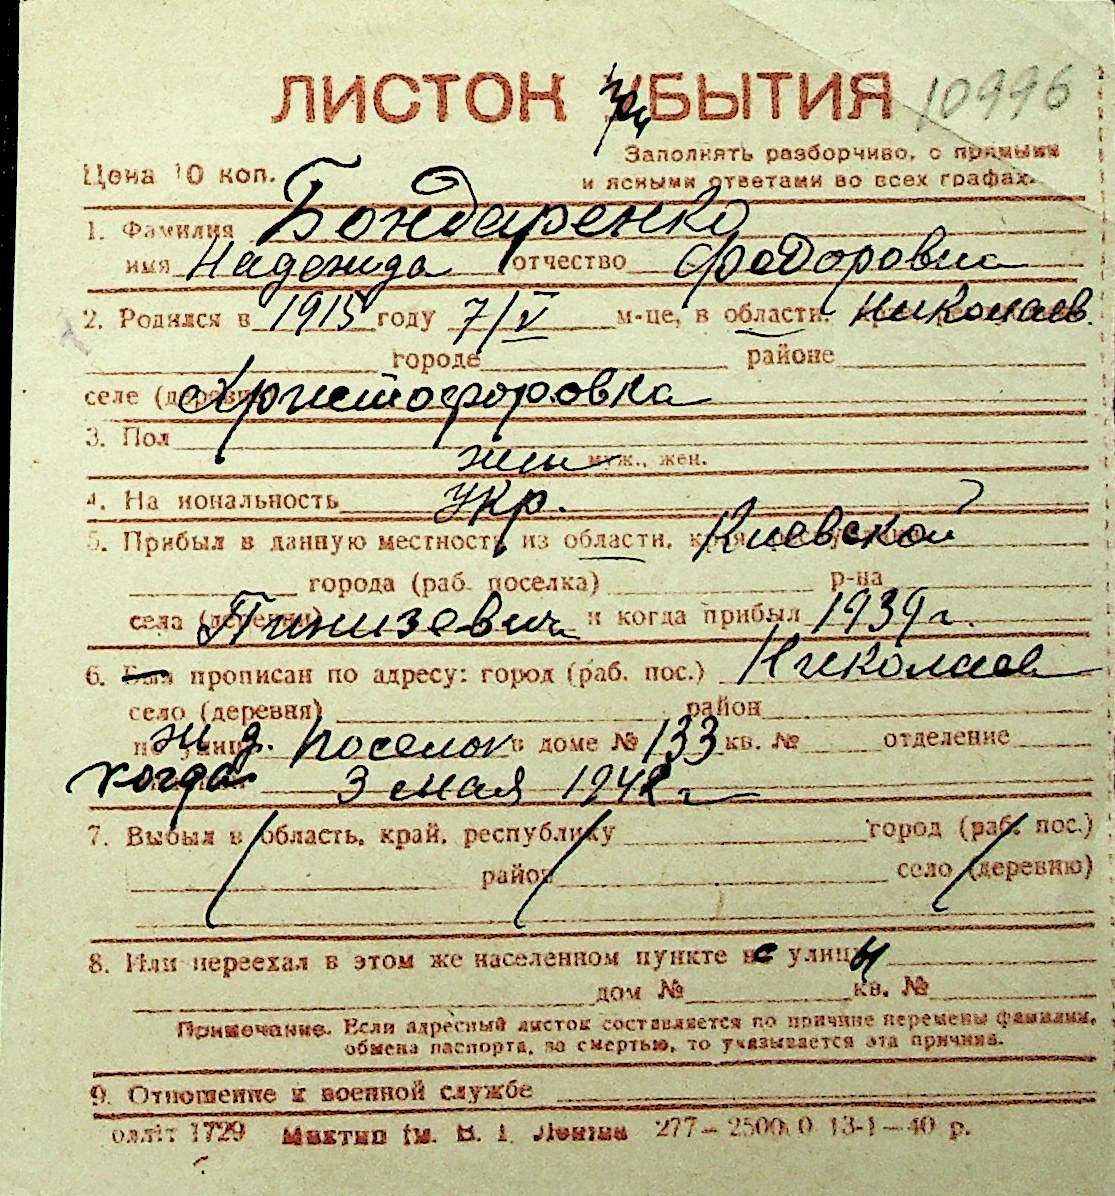 ЛИСТОК при УБЫТИЯ 10996
Цена 10 коп.
Заполнять разборчиво, с прямыми
и ясными ответами во всех графах.
1. Фамилия Бондаренко
имя Надежда отчество Федоровна
2. Родился в 1915 году 7/V м-це, в области, Николаев.
городе районе
селе (деревне) Христофоровка
3. Пол
жен муж., жен.
4. Национальность укр.
5. Прибыл в данную местность из области, края Киевской
города (раб. поселка) р-на
села (деревни) и когда прибыл 1939 г.
6. Был прописан по адресу: город (раб. пос.) Николаев
село (деревня) район
по улице ж. д. поселок в доме № 133 кв. № отделение
когда 3 мая 1942 г
7. Выбыл в область, край, республику город (раб. пос.)
район село (деревню)
8. Или переехал в этом же населенном пункте с улицы
дом № кв. №
Примечание. Если адресный листок составляется по причине перемены фамилии,
обмена паспорта, за смертью, то указывается эта причина.
9. Отношение к военной службе
оллiт 1729 Миктип iм. В. I. Ленiна 277—2500.0 13-1—40 р.